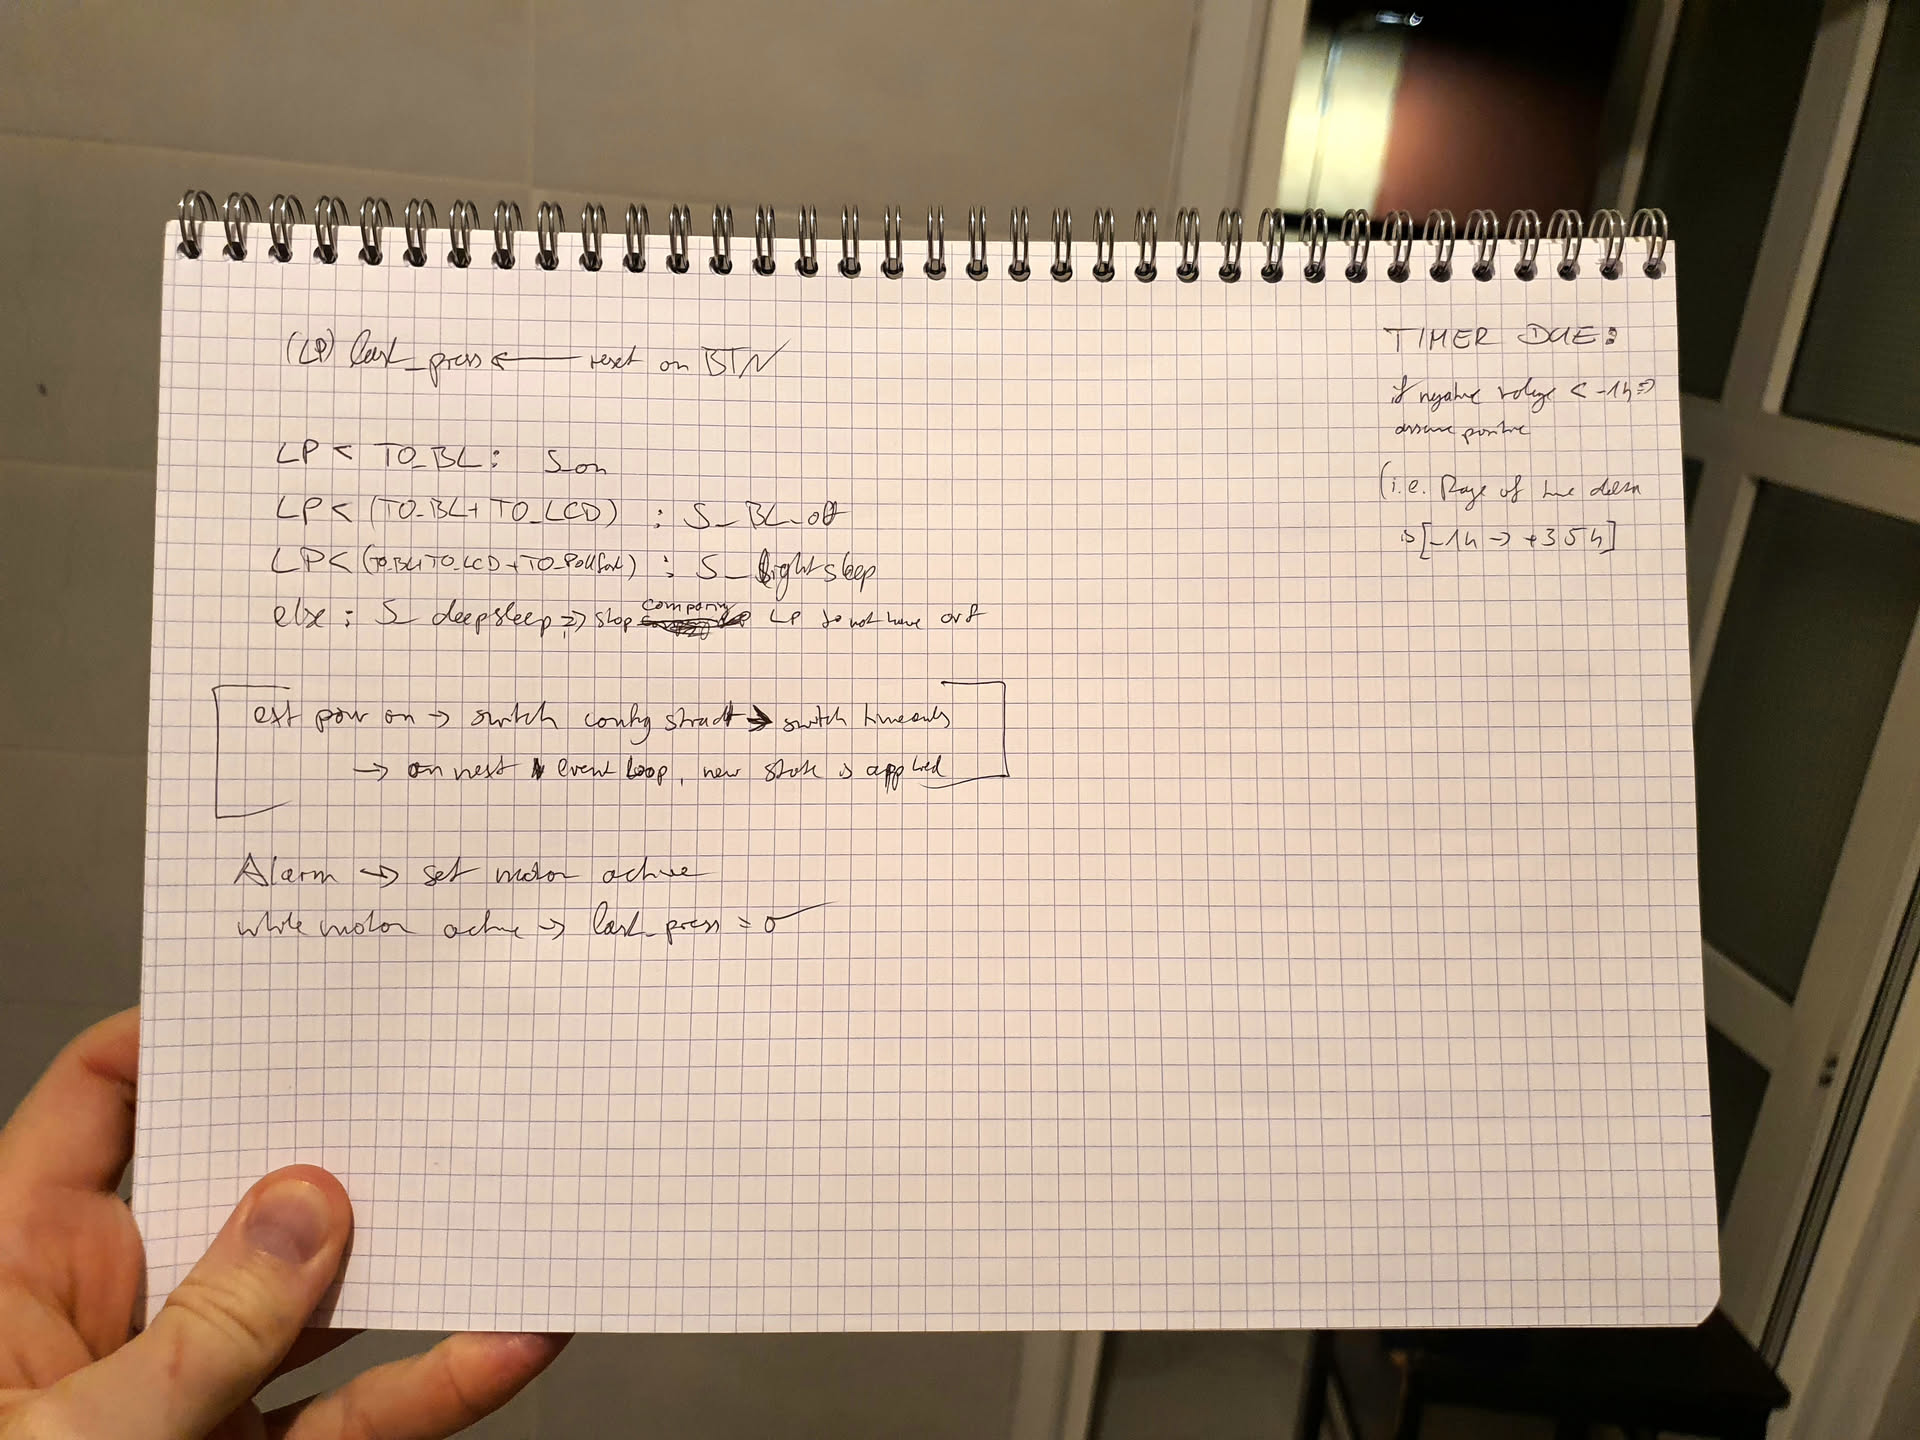 (LP) last_press ← reset on BTN
LP < TO_BL : S_on
LP < (TO_BL + TO_LCD) : S_BL_off
LP < (TO_BL+TO_LCD+TO_Pollfast) : S_lightsleep
else : S_deepsleep => stop comparing LP to not have ovf
ext power on → switch config struct → switch timeouts
→ on next event loop, new state is applied
Alarm → set motor active
while motor active → last_press = 0
TIMER DUE:
if negative < -1h =>
assume positive
(i.e. Range of time
is [-1h → +35h]